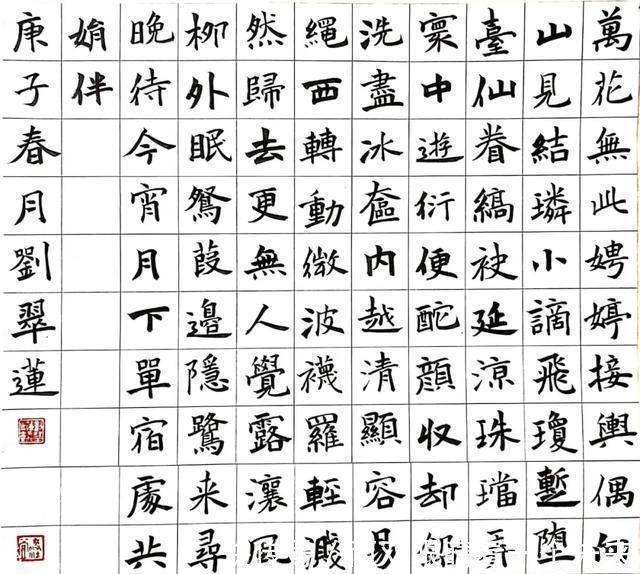 萬花無此娉婷接輿偶
山見結璘小謫飛瓊蹔墮
臺仙眷縞袂延涼珠璫弄
寰中遊衍便酡顏收却
洗盡冰奩内越清顯容易
繩西轉動微波襪羅輕濺
然歸去更無人覺露瀼風
柳外眠鴛葭邊隱鷺来尋
晚待今宵月下單宿處共
娟伴
庚子春月劉翠蓮